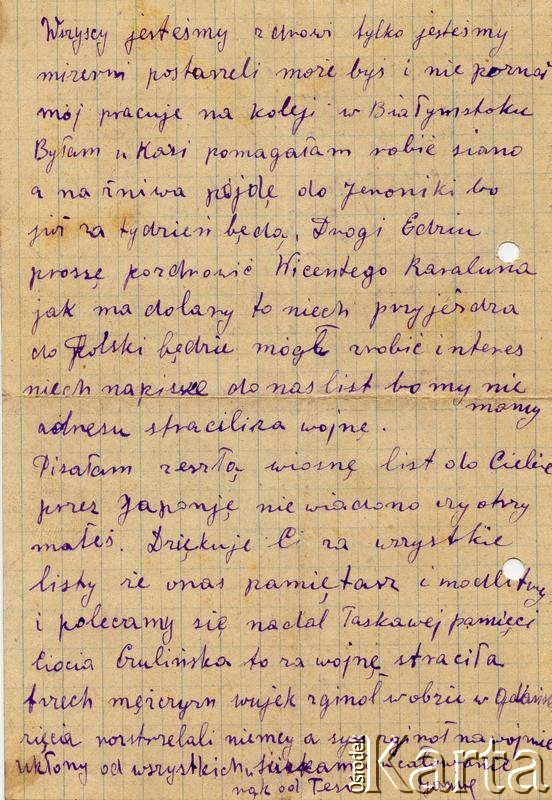 Wszyscy jesteśmy zdrowi tylko jesteśmy
mizerni postarzeli może byś i nie poznał
mój pracuje na koleji w Białymstoku
Byłam u Kazi pomagałam robić siano
a na żniwa pójdę do Jenoniki bo
już za tydzień będą. Drogi Edziu
proszę pozdrowić Wicentego Karaluna
jak ma dolary to niech przyjeżdza
do Polski będzie mógł zrobić interes
niech napisze do nas list bo my nie
mamy
adresu straciliza wojnę.
Pisałam zeszłą wiosnę list do Ciebie
przez Japonję nie wiadono czy otrzy
małeś. Dziękuje Ci za wszystkie
listy że onas pamiętasz i modlitwy
i polecamy się nadal łaskawej pamięci
Ciocia Czulińska to za wojnę straciła
trzech męrzczyzn wujek zginoł w obzie w Gdańsk
zięcia rozstrzelali niemcy a syn zginoł na wojnie
ukłony od wszystkich i całowanie
rąk od
Ośrodek
Karta